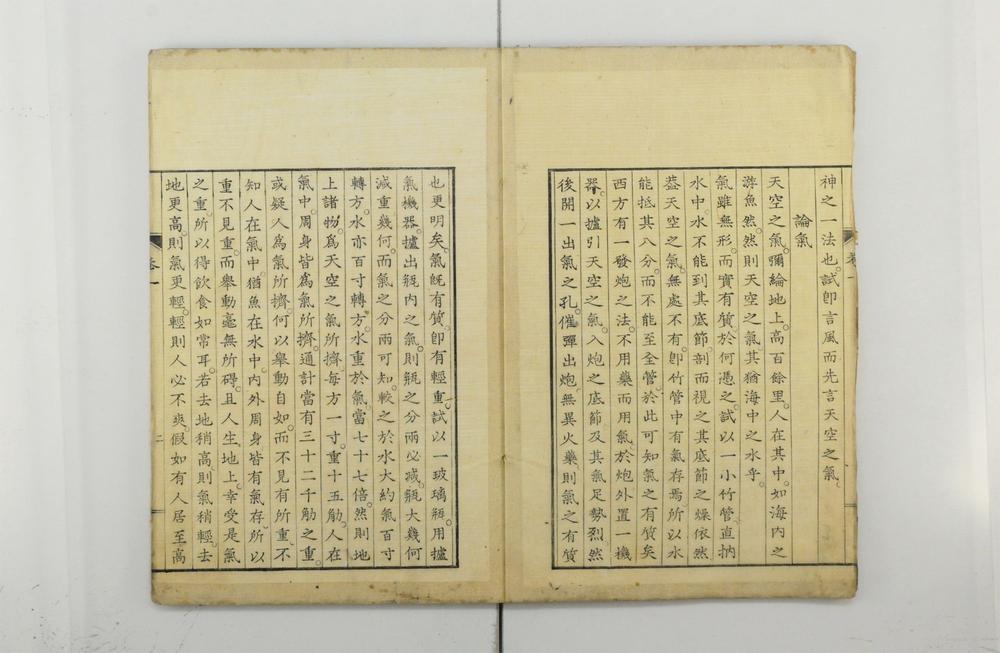 神之一法也試卽言風而先言天空之氣。
論氣
天空之氣。彌綸地上。高百餘里。人在其中。如海內之
游魚然。然則天空之氣其猶海中之水乎。
氣雖無形。而實有質。於何憑之。試以一小竹管。直抐
水中。水不能到其底節。剖而視之。其底節之燥依然
葢天空之氣。無處不有。卽竹管中有氣存焉。所以水
能抵其八分。而不能至全管。於此可知氣之有質矣
西方有一發炮之法。不用藥而用氣。於炮外置一機
器。以攄引天空之氣。入炮之底節。及其氣足勢烈。然
後開一出氣之孔。催彈出炮。無異火藥。則氣之有質
也更明矣。氣旣有質。卽有輕重。試以一玻璃瓶。用攄
氣機器。攄出瓶內之氣。則瓶之分兩必減。瓶大幾何
減重幾何。而氣之分兩可知。較之於水大約氣百寸
轉方。水亦百寸轉方。水重於氣。當七十七倍。然則地
上諸物。爲天空之氣所擠。每方一寸。重十五觔。人在
氣中。周身皆爲氣所擠。通計當有三十二千觔之重。
或疑人爲氣所擠。何以舉動自如。而不見有所重不
知人在氣中。猶魚在水中。內外周身皆有氣存。所以
重不見重。而舉動毫無所碍。且人生地上。幸受是氣
之重。所以得飮食如常耳。若去地稍高。則氣稍輕。去
地更高。則氣更輕。輕則人必不爽。假如有人居至高
卷一
二